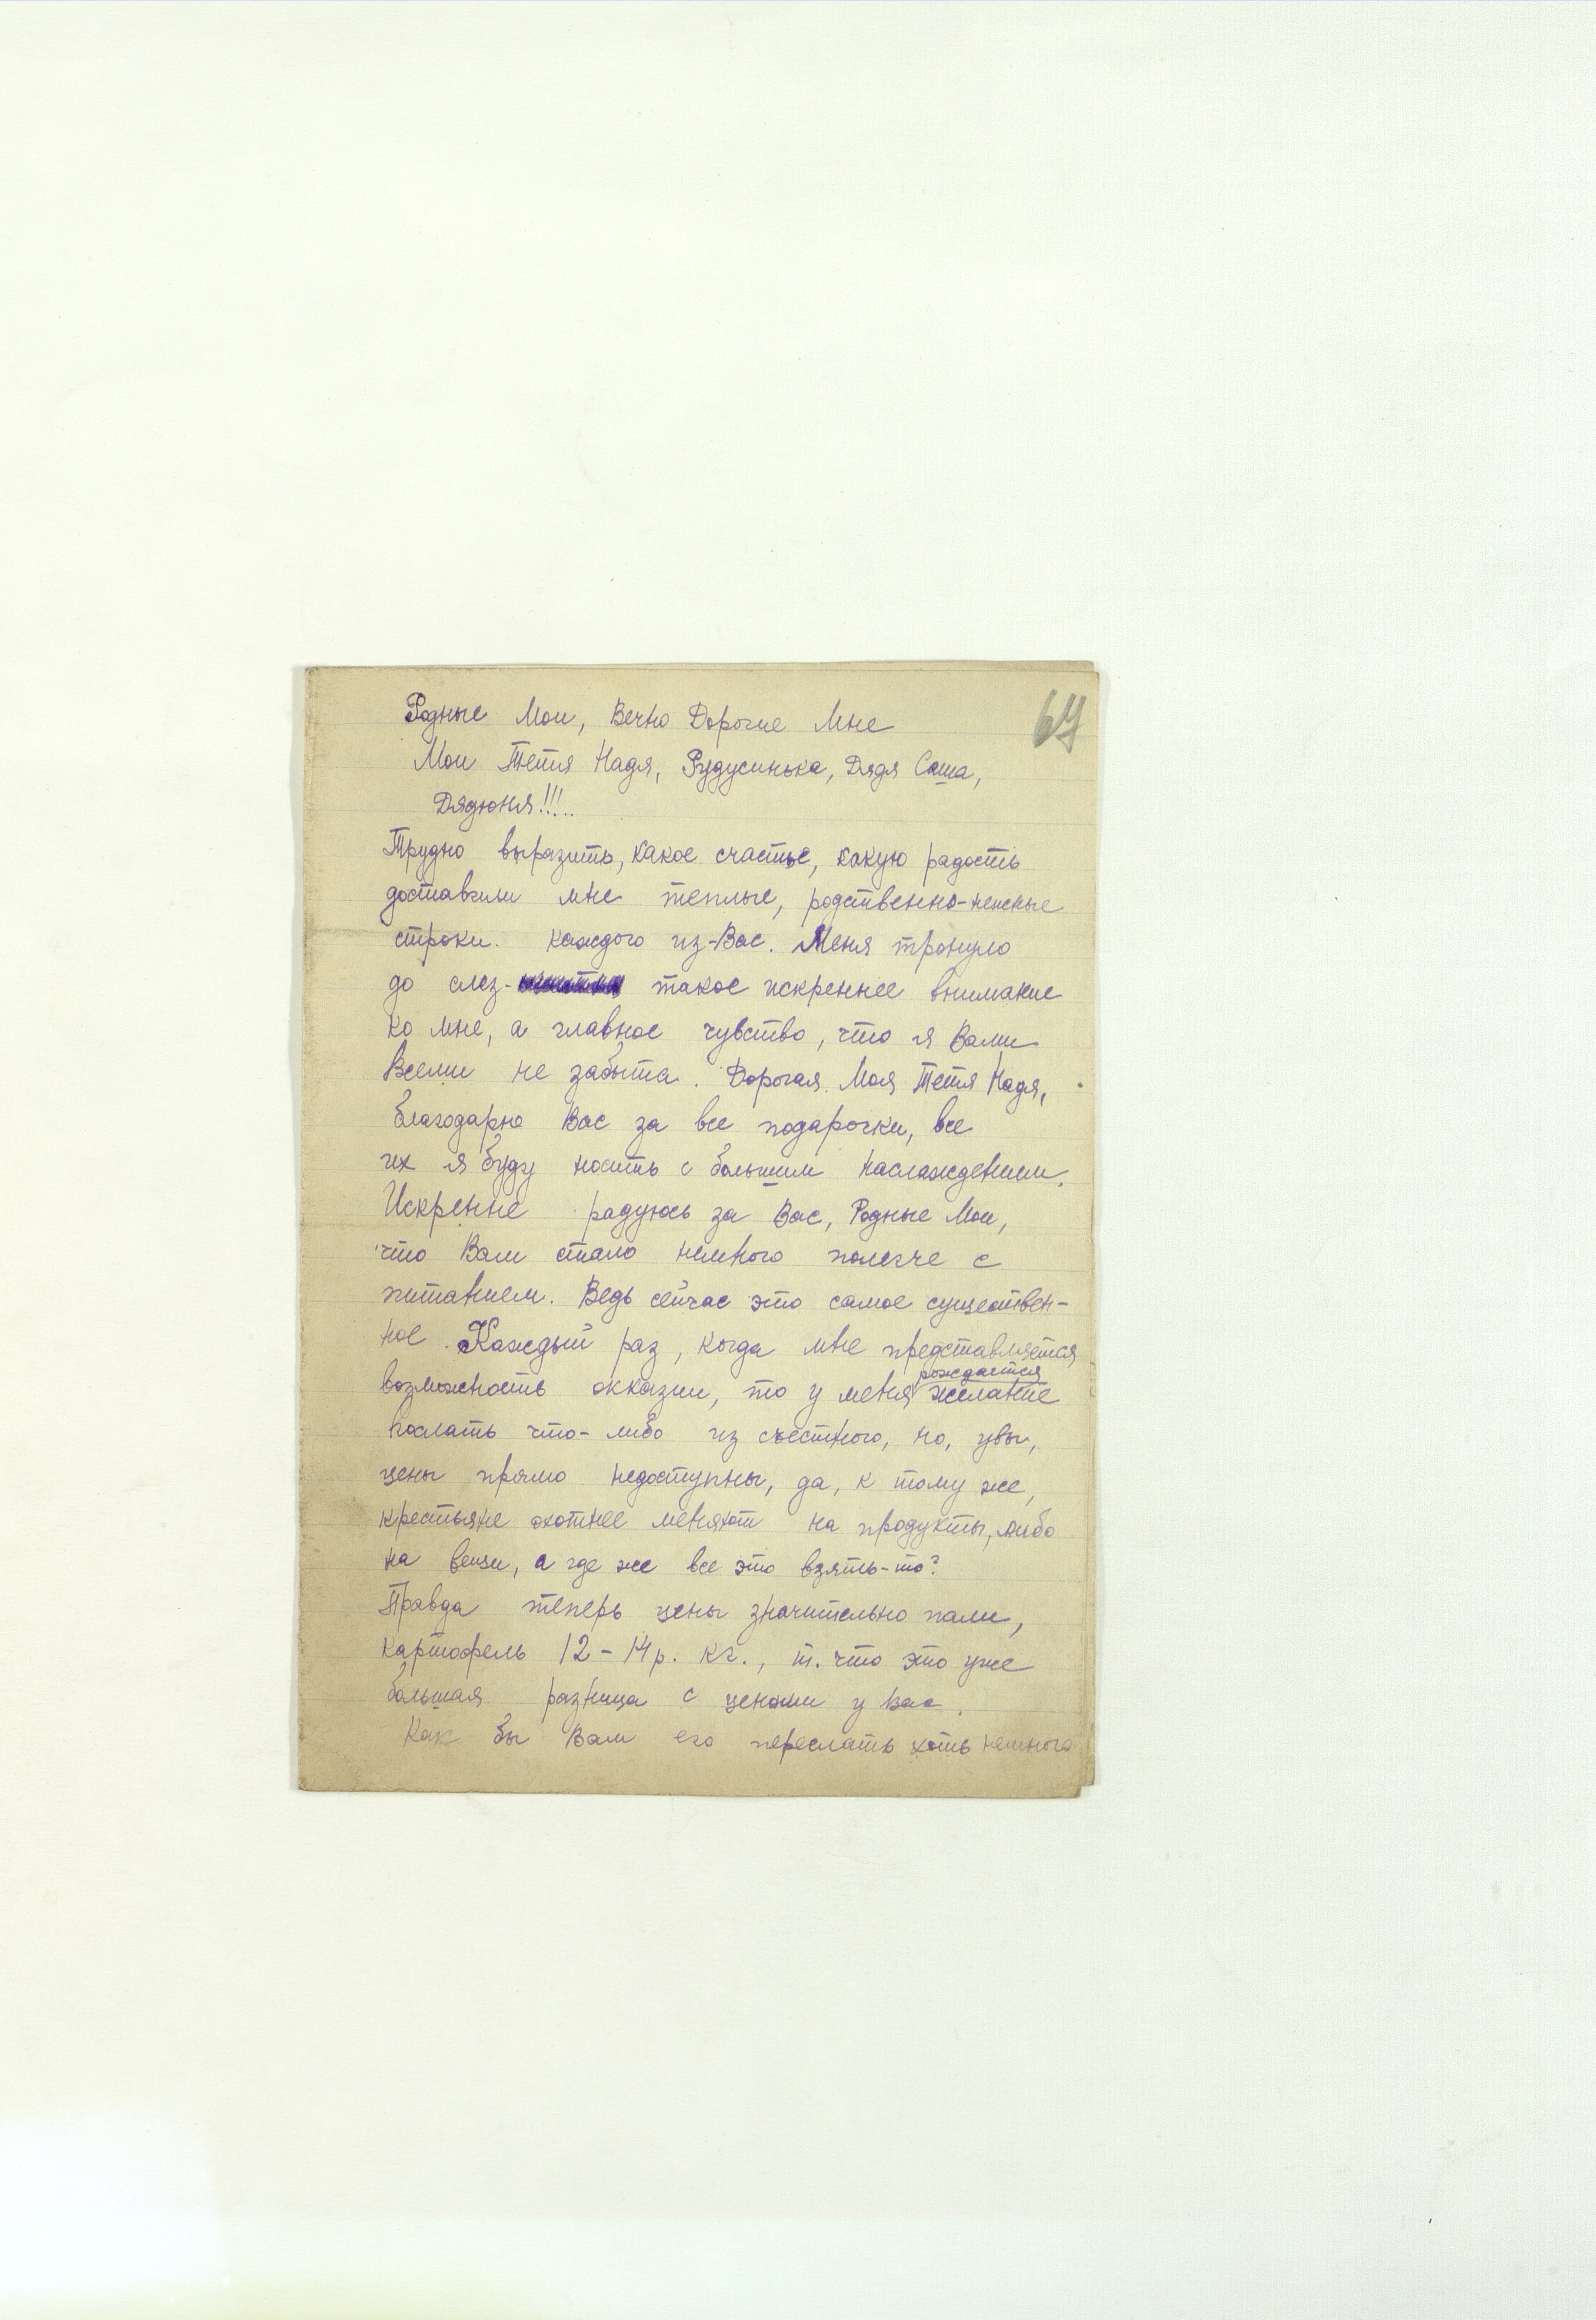 67
Родные Мои, Вечно Дорогие Мне
Мои Тетя Надя, Рудусинька, Дядя Саша,
Дядюня!!!..
Трудно выразить, какое счастье, какую радость
доставили мне теплые, родственно-нежные
строки каждого из-Вас. Меня тронуло
до слез- такое искреннее внимание
ко мне, а главное чувство, что я Вами
Всеми не забыта. Дорогая Моя Тетя Надя,
благодарю Вас за все подарочки, все
их я буду носить с большим наслаждением.
Искренне радуюсь за Вас, Родные Мои,
что Вам стало немного полегче с
питанием. Ведь сейчас это самое существен-
ное. Каждый раз, когда мне представляется
возможность окказии, то у меня рождается желание
послать что-либо из съестного, но, увы,
цены прямо недоступны, да, к тому же,
крестьяне охотнее меняют на продукты, либо
на вещи, а где же все это взять-то?
Правда теперь цены значительно пали,
картофель 12-14р. кг., т. что это уже
большая разница с ценами у Вас.
Как бы Вам его переслать хоть немного